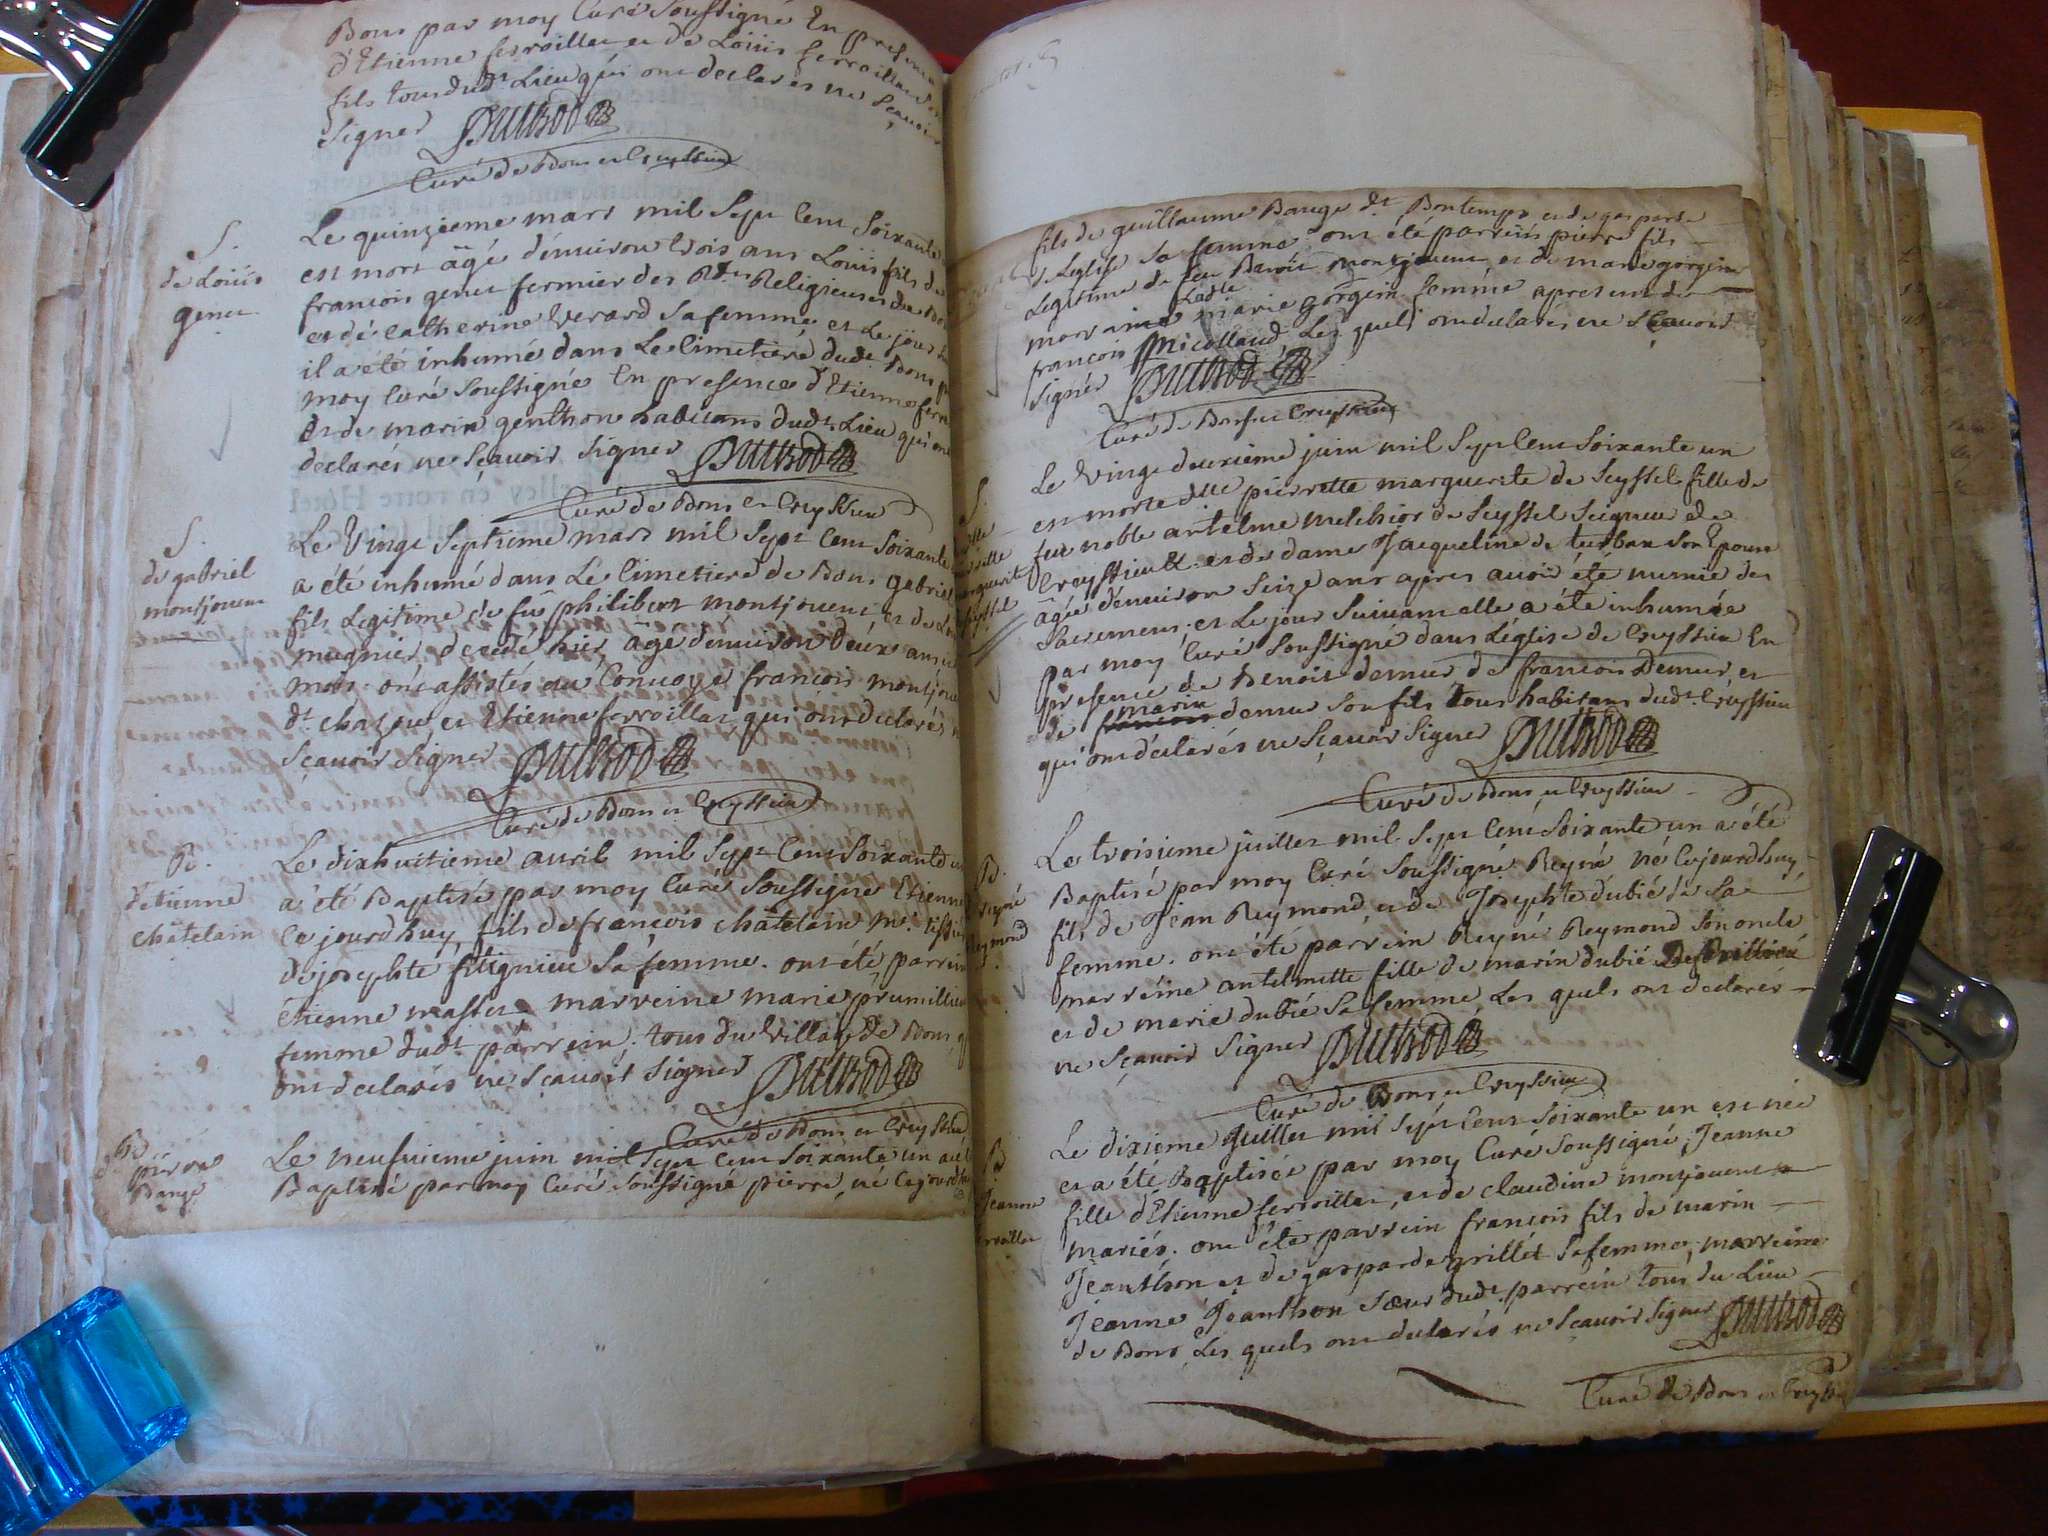 Bons par moy Curé Soussigné En presence
d'Etienne ferroillet et de Loüis ferroillet Son
fils tous dudt Lieu qui ont declarés ne Sçauoir
Signer Duthod
Curé de Bons et Cruyssieu
S.
de Loüis
genet
Le quinzieme mars mil Sept Cent Soixante
est mort âgé d'enuiron trois ans Loüis fils de
francois genet fermier des Rdes Religieuses de Bons
et de Catherine Verard Sa femme et Le jour
il a été inhumé dans Le Cimetiere dudt Bons
moy Curé Soussigné En presence d'Etienne
et de marin genthon habitans dudt Lieu qui ont
declarés ne Sçauoir Signer Duthod
Curé de Bons et Cruyssieu
S.
de gabriel
montjouent
Le Vingt Septieme mars mil Sept Cent Soixante
a été inhumé dans Le Cimetiere de Bons gabriel
fils Legitime de fû philibert montjouent et de
mugnier decedé hier, âgé denuiron deux ans
mois. ont assistés au Conuoye françois
dt et Etienne ferroillet qui ont declarés
Sçauoir Signer Duthod
Curé de Bons et Cruyssieu
B.
d'etienne
châtelain
Le dixhuitieme auril mil Sept Cent Soixante
a été Baptisé par moy Curé Soussigné Etienne
Ce jourd'huy, fils de françois châtelain mtre
de josephte fitignieu Sa femme. ont été parrein
étienne masset marreine marie prumillieu
femme dudt parrein. tous du Village de Bons
ont declarés ne Sçauoir Signer Duthod
Curé de Bons et Cruyssieu
B
de pierre
Bange
Le neufuieme juin mil Sept Cent Soixante un a été
Baptisé par moy Curé Soussigné pierre, né Ce jourd'huy
fils de guillaume Bange dt Bontemps et de gasparde
de Leglise Sa femme ont été parrein pierre fils
Legitime de feu Benoit montjouent et de marie gorgein
marraine Ladte marie gorgein femme apresent de
françois micollaud, Les quels ont declarés ne Sçauoir
Signer Duthod
Curé de Bons et Cruyssieu
S.
dlle
pierrette
marguerite
de Seyssel
Le Vingt deuxieme juin mil Sept Cent Soixante un
est morte dlle pierrette marguerite de Seyssel fille de
feu noble antelme melchior de Seyssel Seigneur de
Cruyssieux et de dame Jacqueline de Son Epouse
âgée d'enuiron Seize ans apres auoir été munie des
Sacremens. et Le jour Suiuant elle a été inhumée
par moy Curé Soussigné dans L'église de Cruyssieu En
presence de Benoit demur de francois Demur, et
marin
de francois demur Son fils tous habitans dudt Cruyssieu
qui ont déclarés ne Sçauoir Signer Duthod
Curé de Bons et Cruyssieu
B.
de reyné
Reymond
Le troisieme juillet mil Sept Cent Soixante un a été
Baptisé par moy Curé Soussigné Reyné né Cejourdhuy
fils de Jean Reymond et de Josephte dubié de Sa
femme. ont été parrein Reyné Reymond Son oncle
marréine antelmette fille de marin dubié
et de marie dubié Sa femme Les quels ont declarés
ne Sçauoir Signer Duthod
Curé de Bons et Cruyssieu
B
Jeanne
ferroillet
Le dixieme Juillet mil Sept Cent Soixante un est née
et a été Baptisée par moy Curé Soussigné, Jeanne
fille d'Etienne ferroillet, et de claudine montjouent
mariés. ont été parrein françois fils de marin
Jeanthon et de gasparde grillet Sa femme, marreine
Jeanne Jeanthon Soeur dudt parrein tous du Lieu
de Bons, Les quels ont declarés ne Sçauoir Signer Duthod
Curé de Bons et Cruyssieu